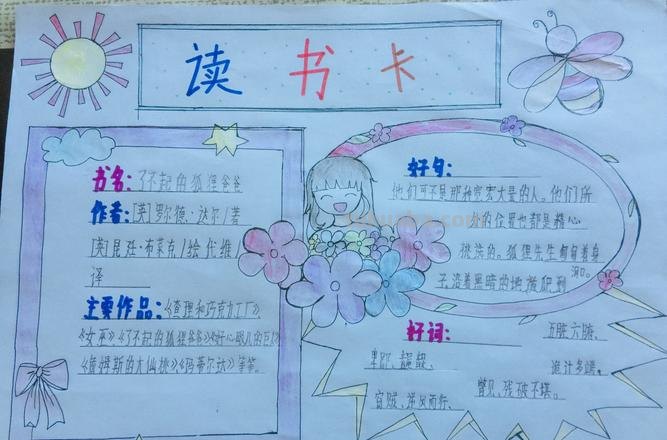 读书卡
书名:了不起的狐狸爸爸
作者:[英]罗尔德·达尔/著
[英]昆廷·布莱克/绘 代维/
译
主要作品:《查理和巧克力工厂》、
《女巫》《了不起的狐狸爸爸》《好心眼儿的巨人》
《詹姆斯的大仙桃》《玛蒂尔达》等等。
好句:
他们可不是那种宽宏大量的人。他们所
处的位置也都是精心
挑选的。狐狸先生匍匐着身
子沿着黑暗的地道爬到
洞口。
好词: 五脏六腑、
卑鄙、 诡计多端、
盗贼、逆风而行、 瞥见、残破不堪。